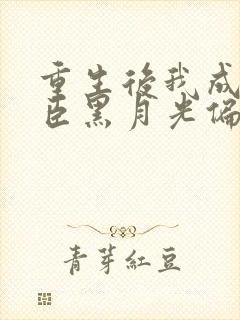 重生後我成
臣黑月光偏
青芽紅豆